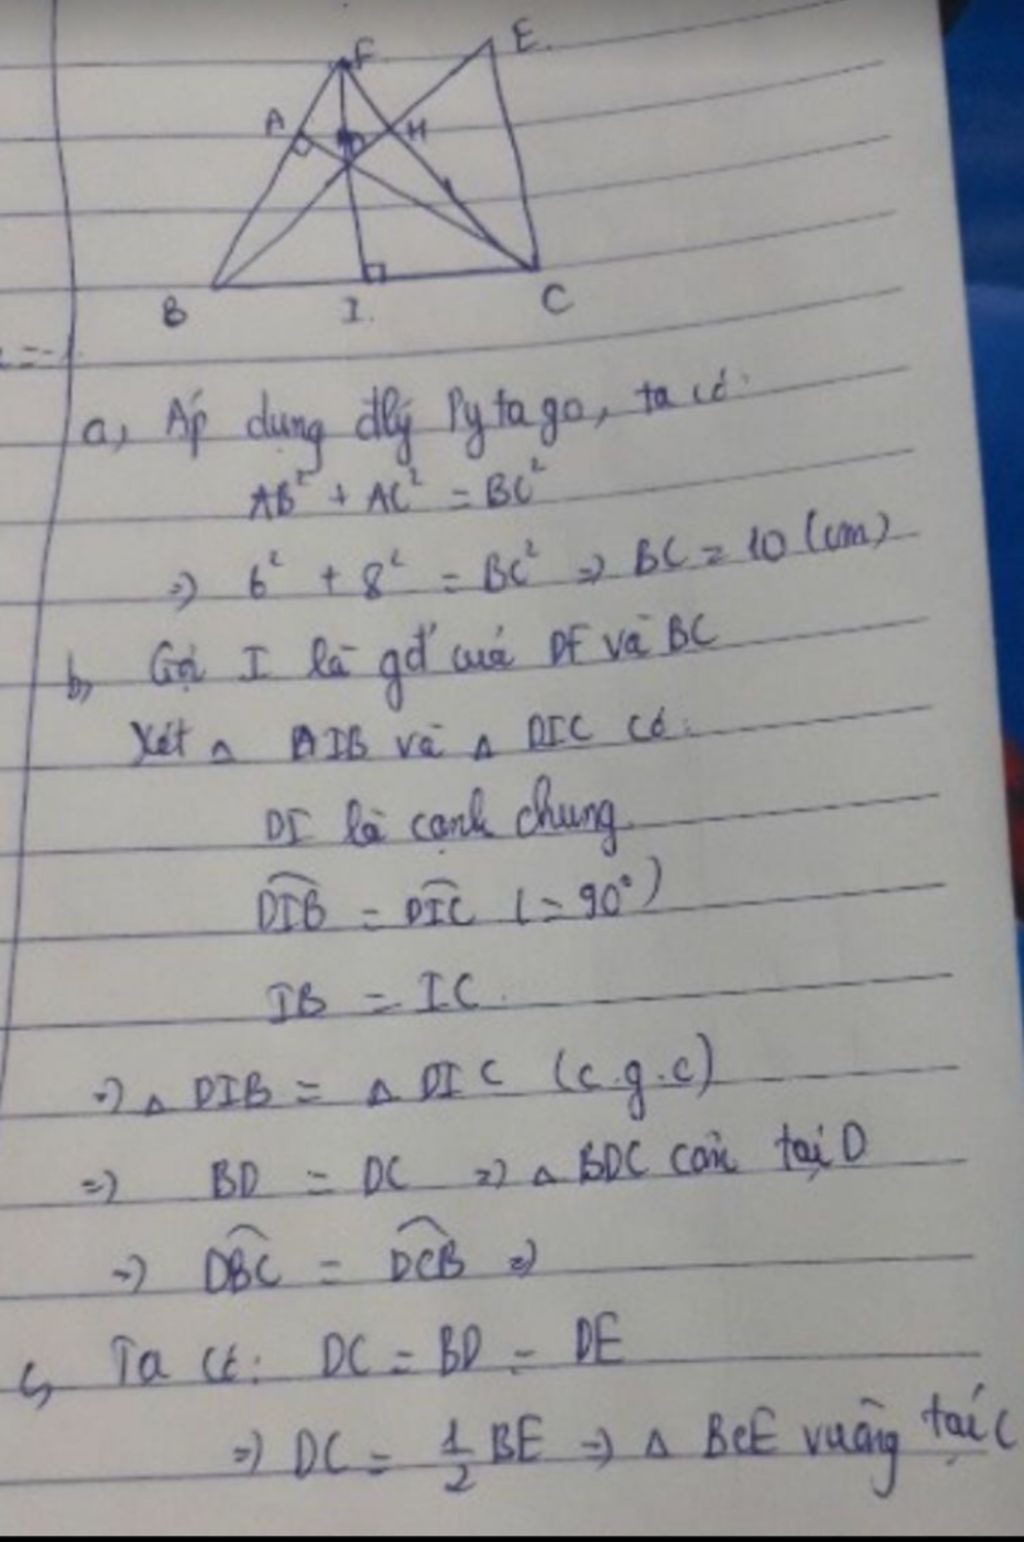 F
E
A
D
H
B
I
C
a, Áp dụng đlý Pytago, ta có:
AB² + AC² = BC²
=) 6² + 8² = BC² =) BC = 10 (cm)
b, Gọi I là gđ' của DF và BC
Xét △ DIB và △ DIC có:
DI là cạnh chung
DIB = DIC (= 90°)
IB = IC
=) △ DIB = △ DIC (c.g.c)
=) BD = DC =) △ BDC cân tại D
=) DBC = DCB =)
c, Ta có: DC = BD = DE
=) DC = 1/2 BE =) △ BCE vuông tại C